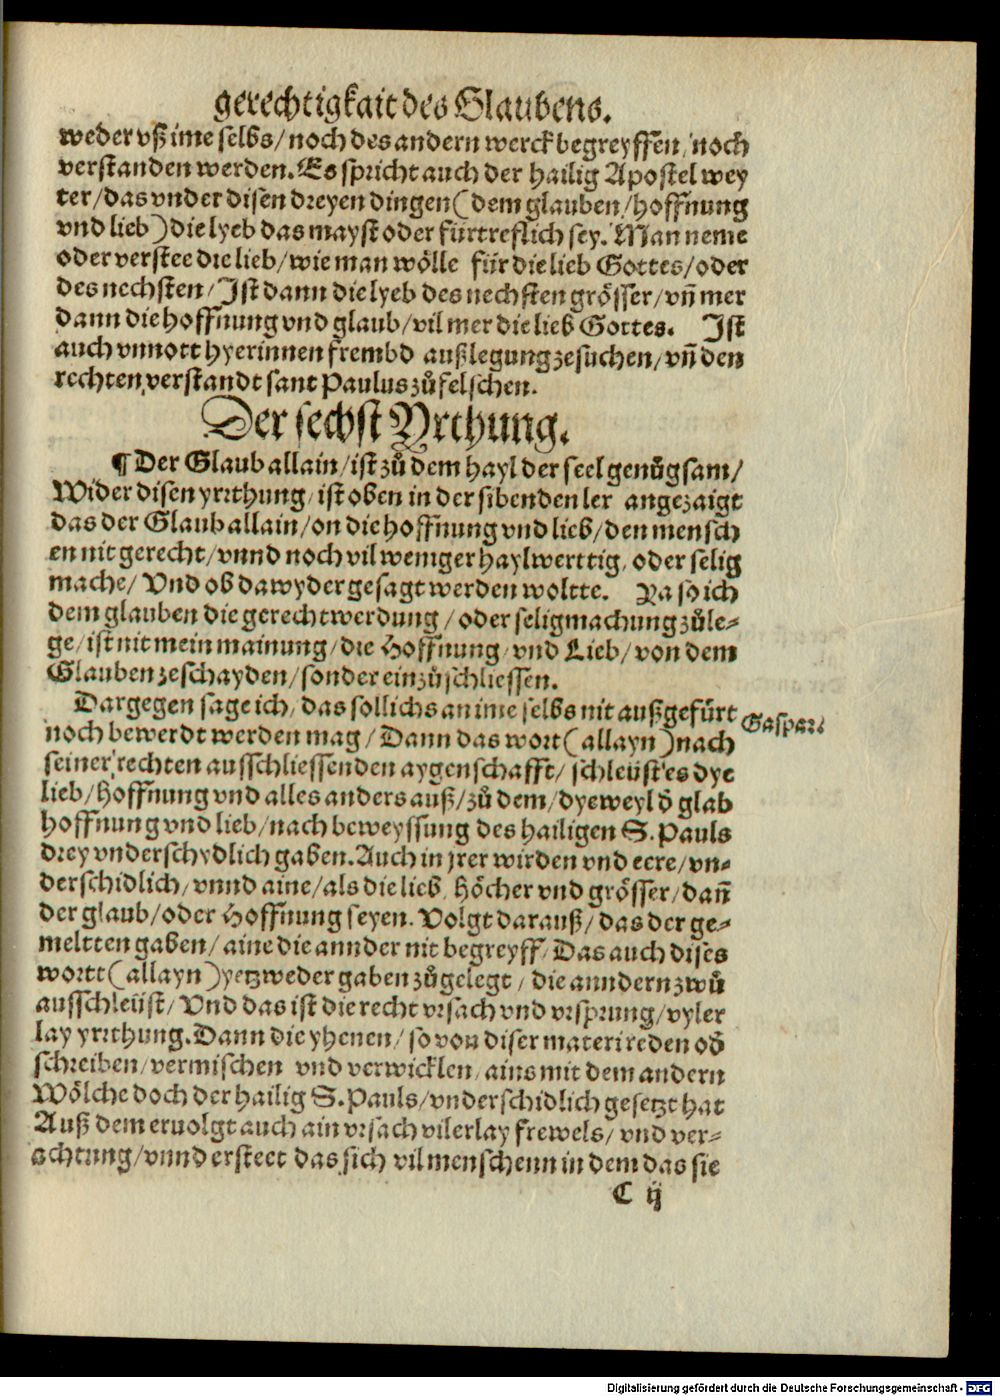 gerechtigkait des Glaubens.
weder vß ime selbs/noch des andern werck begreyffen/noch
verstanden werden. Es spricht auch der hailig Apostel wey
ter/das vnder disen dreyen dingen (dem glauben/hoffnung
vnd lieb) die lyeb das mayst oder fürtreflich sey. Man neme
oder verstee die lieb/wie man wölle für die lieb Gottes/oder
des nechsten/Ist dann die lyeb des nechsten grösser/vñ mer
dann die hoffnung vnd glaub/vil mer die lieb Gottes. Ist
auch vnnott hyerinnen frembd außlegung zesuchen/vñ den
rechten verstandt sant Paulus zů felschen.
Der sechst Yrthung.
¶ Der Glaub allain/ist zů dem hayl der seel genůgsam/
Wider disen yrrthung/ist oben in der sibenden ler angezaigt
das der Glaub allain/on die hoffnung vnd lieb/den mensch
en nit gerecht/vnnd noch vil weniger haylwerttig, oder selig
mache/Vnd ob dawyder gesagt werden woltte. Ya so ich
dem glauben die gerechtwerdung/oder seligmachung zůle-
ge/ist nit mein mainung/die Hoffnung/vnd Lieb/von dem
Glauben zeschayden/sonder einzůschliessen.
Dargegen sage ich/das sollichs an ime selbs nit außgefürt
Gaspar:
noch bewerdt werden mag/Dann das wort (allayn) nach
seiner rechten ausschliessenden aygenschafft/schleüst es dye
lieb/Hoffnung vnd alles anders auß/zů dem/dyeweyl d̄ glab
hoffnung vnd lieb/nach beweyssung des hailigen S. Pauls
drey vnderschydlich gaben. Auch in jrer wirden vnd eere/vn-
derschidlich/vnnd aine/als die lieb, höcher vnd grösser/dañ
der glaub/oder Hoffnung seyen. Volgt darauß/das der ge-
meltten gaben/aine die annder nit begreyff/Das auch dises
wortt (allayn) yetzweder gaben zůgelegt/die anndern zwů
ausschleüst/Vnd das ist die recht vrsach vnd vrsprung/vyler
lay yrrthung. Dann die yhenen/so von diser materi reden od̄
schreiben/vermischen vnd verwicklen/ains mit dem andern
Wölche doch der hailig S. Pauls/vnderschidlich gesetzt hat
Auß dem eruolgt auch ain vrsach vilerlay frewels/vnd ver-
achtung/vnnd ersteet das sich vil menschenn in dem das sie
C ij
Digitalisierung gefördert durch die Deutsche Forschungsgemeinschaft - DFG